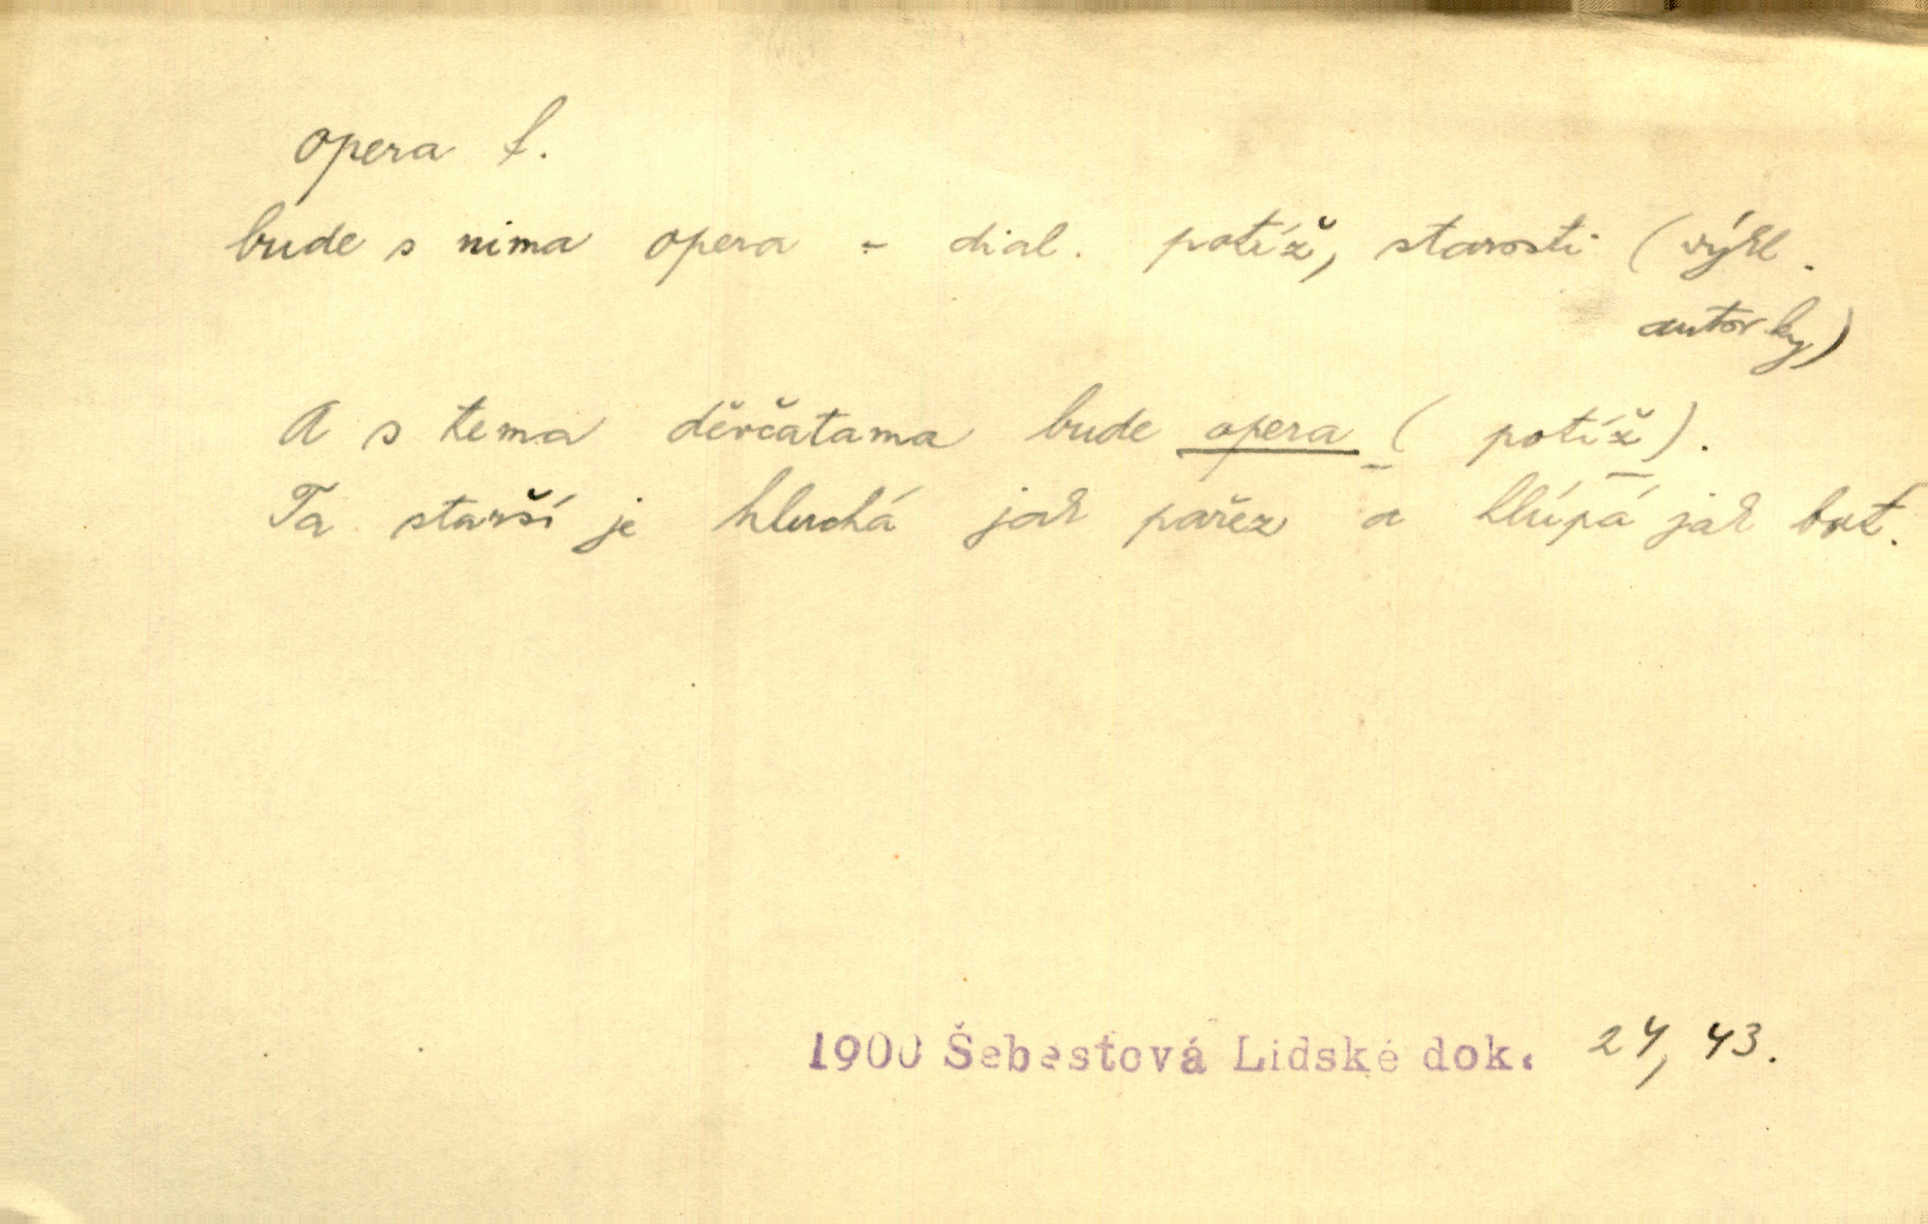 opera f.
bude s nima opera - dial. potíž, starosti (výkl.
autorky)
A s tema děvčatama bude opera (potíž).
Ta starší je hluchá jak pařez a hlúpá jak bot.
1900 Šebestová Lidské dok. 24, 43.